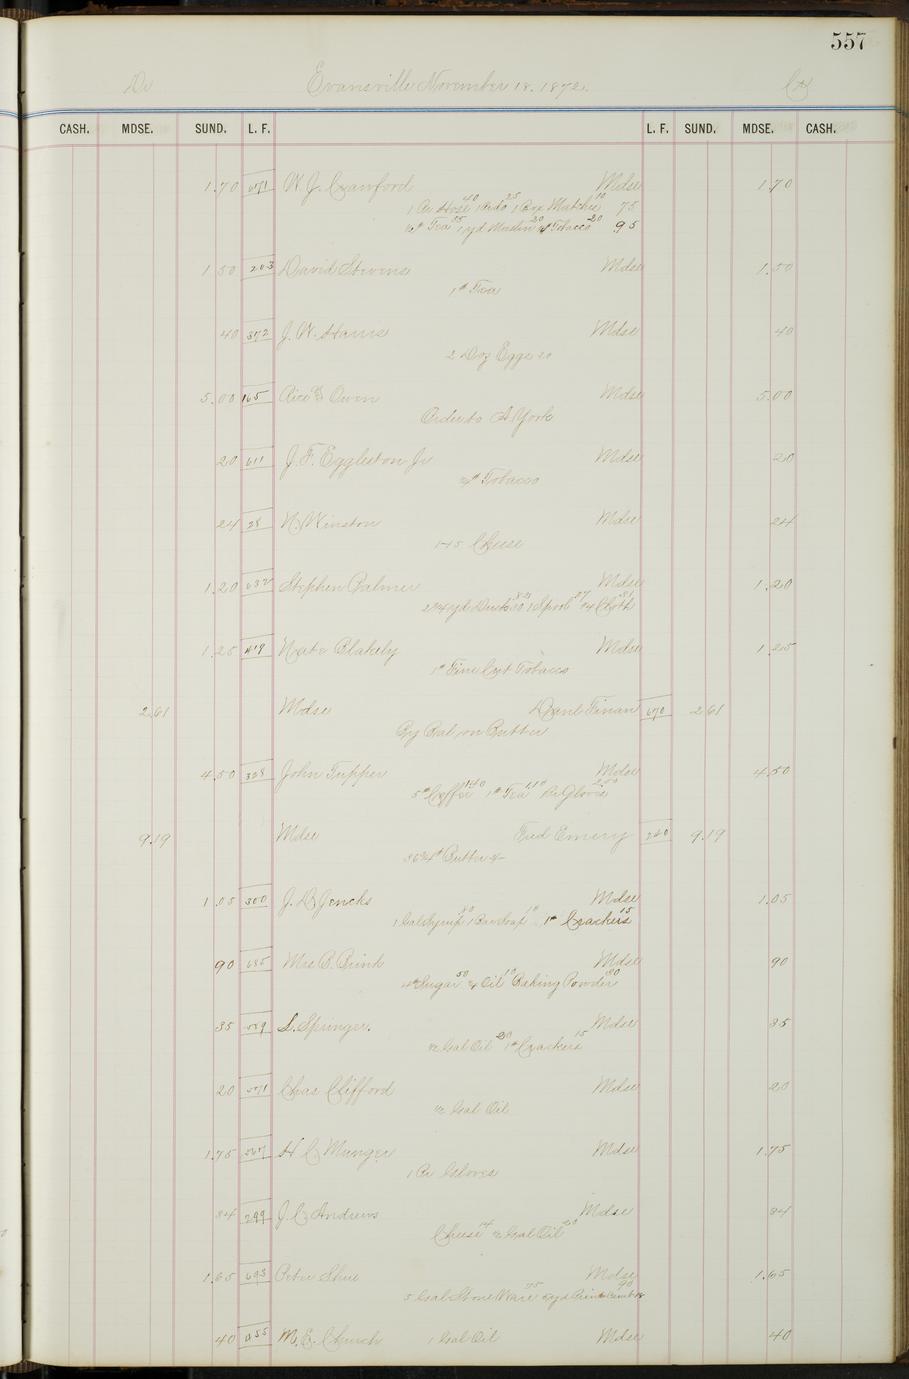 557
Dr Evansville November 18. 1872. Cr
CASH. MDSE. SUND. L. F. L. F. SUND. MDSE. CASH.
1.70 W. J. Crawford Mdse 1.70
1 Pr Hose 40 1 do 25 1 Box Matches 10 75
Tea 55 1 yd Muslin 20 Tobacco 20 95
1.50 203 David Stevens Mdse 1.50
1# Tea
40 372 J. W. Hams Mdse 40
2 Doz Eggs 20
5.00 165 Rice & Owen Mdse 5.00
Order to A York
20 611 J. F. Eggleston Jr Mdse 20
1/4# Tobacco
24 28 N. Winston Mdse 24
1-15 Cheese
1.20 632 Stephen Palmer Mdse 1.20
2 3/4 yd Duck 30 1 Spool 07 Cloth
1.25 419 Nate Blakely Mdse 1.25
1# Fine Cut Tobacco
2.61 Mdse Danl Finan 670 2.61
By Bal. on Butter
4.50 308 John Tupper Mdse 4.50
5# Coffee 1# Tea Pr Gloves
9.19 Mdse Fred Emery 240 9.19
36 3/4# Butter
1.05 300 J. D. Jencks Mdse 1.05
1 Gal Syrup 80 1 Bar Soap 10 1# Crackers 15
90 685 Mrs P. Brink Mdse 90
Sugar 50 Oil 10 Baking Powder 30
35 L. Springer. Mdse 35
1/2 Gal Oil 20 1# Crackers 15
20 Chas Clifford Mdse 20
1/2 Gal Oil
1.75 H C Munger Mdse 1.75
1 Pr Gloves
34 299 J. C. Andrews Mdse 34
Cheese 14 1/2 Gal Oil 20
1.65 693 Peter Shue Mdse 1.65
5 Gal Stone Ware 75 yd Print 90
40 M. E. Church 1 Gal Oil Mdse 40